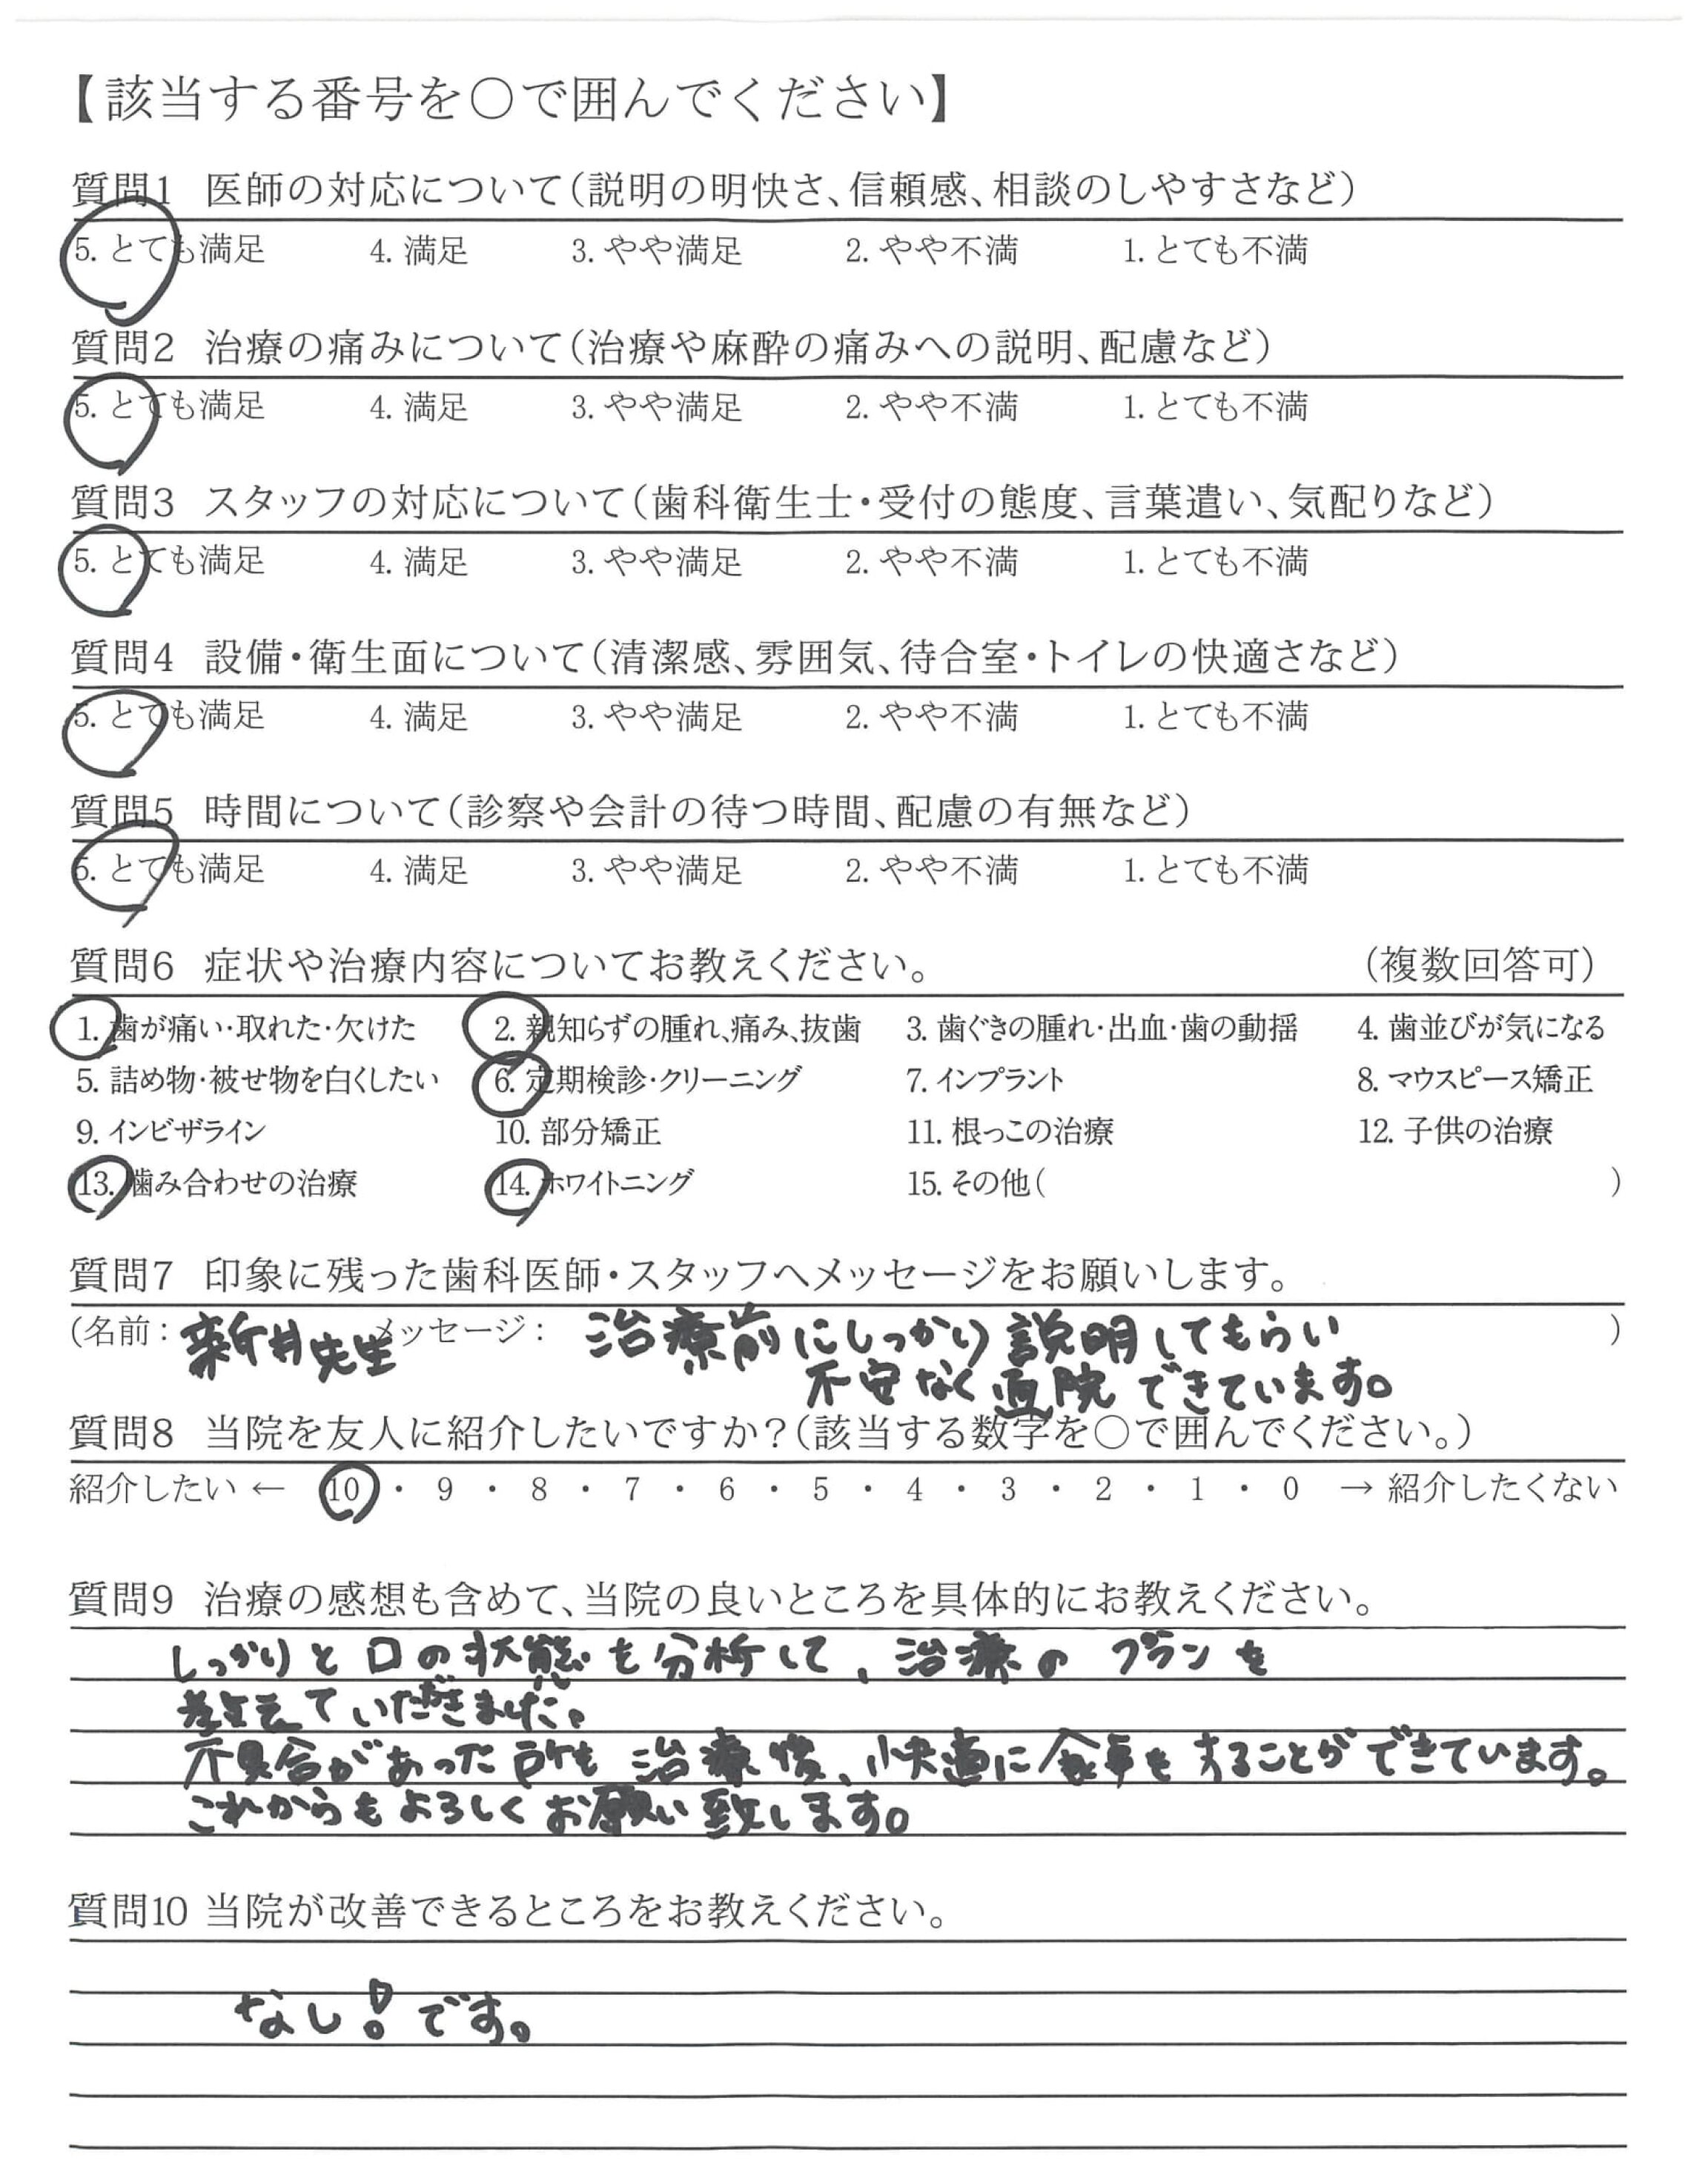 【該当する番号を〇で囲んでください】
質問1 医師の対応について(説明の明快さ、信頼感、相談のしやすさなど)
5. とても満足 4. 満足 3. やや満足 2. やや不満 1. とても不満
質問2 治療の痛みについて(治療や麻酔の痛みへの説明、配慮など)
5. とても満足 4. 満足 3. やや満足 2. やや不満 1. とても不満
質問3 スタッフの対応について(歯科衛生士・受付の態度、言葉遣い、気配りなど)
5. とても満足 4. 満足 3. やや満足 2. やや不満 1. とても不満
質問4 設備・衛生面について(清潔感、雰囲気、待合室・トイレの快適さなど)
5. とても満足 4. 満足 3. やや満足 2. やや不満 1. とても不満
質問5 時間について(診察や会計の待つ時間、配慮の有無など)
5. とても満足 4. 満足 3. やや満足 2. やや不満 1. とても不満
質問6 症状や治療内容についてお教えください。 (複数回答可)
1. 歯が痛い・取れた・欠けた 2. 親知らずの腫れ、痛み、抜歯 3. 歯ぐきの腫れ・出血・歯の動揺 4. 歯並びが気になる
5. 詰め物・被せ物を白くしたい 6. 定期検診・クリーニング 7. インプラント 8. マウスピース矯正
9. インビザライン 10. 部分矯正 11. 根っこの治療 12. 子供の治療
13. 歯み合わせの治療 14. ホワイトニング 15. その他( )
質問7 印象に残った歯科医師・スタッフへメッセージをお願いします。
(名前: 新井先生 メッセージ: 治療前にしっかり説明してもらい )
不安なく通院できています。
質問8 当院を友人に紹介したいですか?(該当する数字を〇で囲んでください。)
紹介したい ← 10 ・ 9 ・ 8 ・ 7 ・ 6 ・ 5 ・ 4 ・ 3 ・ 2 ・ 1 ・ 0 → 紹介したくない
質問9 治療の感想も含めて、当院の良いところを具体的にお教えください。
しっかりと口の状態を分析して、治療のプランを
教えていただきました。
不具合があった所も治療後、快適に食事をすることができています。
これからもよろしくお願い致します。
質問10 当院が改善できるところをお教えください。
なし!です。